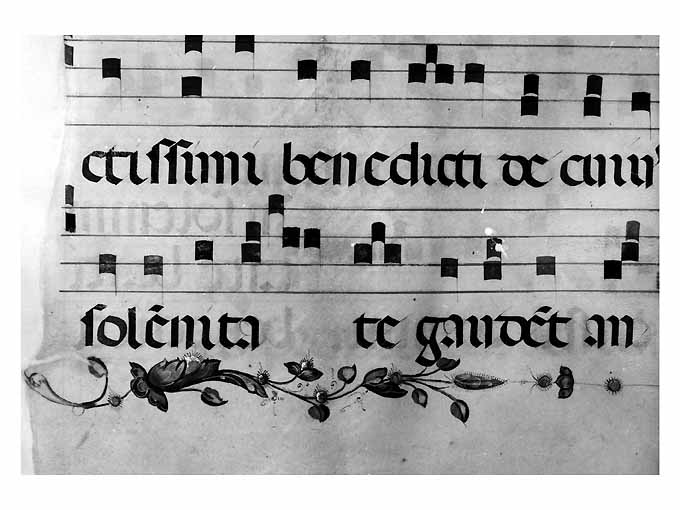 ctissimi benedicti de cuiu⁹
solēnita te gaudēt an